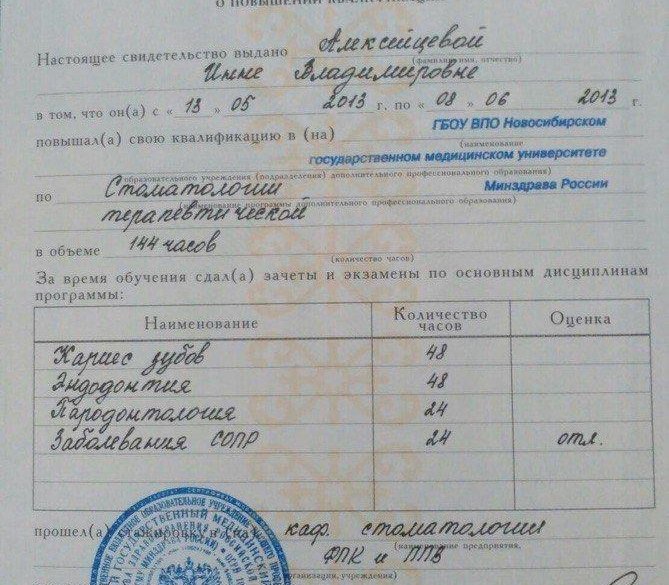 О ПОВЫШЕНИИ КВАЛИФИКАЦИИ
Настоящее свидетельство выдано Алексейцевой
(фамилия, имя, отчество)
Инне Владимировне
в том, что он(а) с « 13 » 05 2013 г. по « 08 » 06 2013 г.
повышал(а) свою квалификацию в (на) ГБОУ ВПО Новосибирском
(наименование
государственном медицинском университете
образовательного учреждения (подразделения) дополнительного профессионального образования)
по Стоматологии Минздрава России
(наименование программы дополнительного профессионального образования)
терапевтической
в объеме 144 часов
(количество часов)
За время обучения сдал(а) зачеты и экзамены по основным дисциплинам
программы:
Наименование Количество часов Оценка
Кариес зубов 48
Эндодонтия 48
Пародонтология 24
Заболевания СОПР 24 отл.
прошел(а) стажировку в (на) каф. стоматологии
(наименование предприятия,
ФПК и ППВ
организации, учреждения)